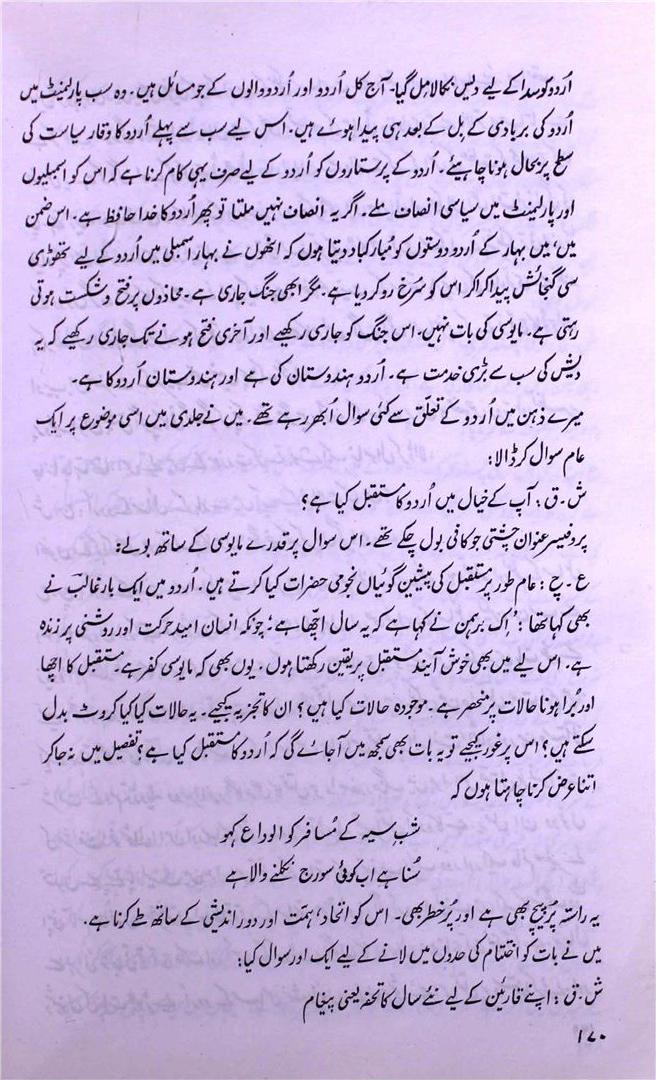 اُردو کو سدا کے لیے دیس نکالا مل گیا۔ آج کل اُردو اور اُردو والوں کے جو مسائل ہیں۔ وہ سب پارلیمنٹ میں
اُردو کی بربادی کے بل کے بعد ہی پیدا ہوئے ہیں۔ اس لیے سب سے پہلے اُردو کا وقار سیاست کی
سطح پر بحال ہونا چاہیئے۔ اُردو کے پرستاروں کو اُردو کے لیے صرف یہی کام کرنا ہے کہ اس کو اسمبلیوں
اور پارلیمنٹ میں سیاسی انصاف ملے۔ اگر یہ انصاف نہیں ملتا تو پھر اُردو کا خدا حافظ ہے۔ اس ضمن
میں، میں بہار کے اُردو دوستوں کو مُبارکباد دیتا ہوں کہ انھوں نے بہار اسمبلی میں اُردو کے لیے تھوڑی
سی گنجائش پیدا کرا کر اس کو سُرخ رو کر دیا ہے۔ مگر ابھی جنگ جاری ہے۔ محاذوں پر فتح و شکست ہوتی
رہتی ہے۔ مایوسی کی بات نہیں۔ اس جنگ کو جاری رکھیے اور آخری فتح ہونے تک جاری رکھیے کہ یہ
دیش کی سب سے بڑی خدمت ہے۔ اُردو ہندوستان کی ہے اور ہندوستان اُردو کا ہے۔
میرے ذہن میں اُردو کے تعلّق سے کئی سوال اُبھر رہے تھے۔ میں نے جلدی میں اسی موضوع پر ایک
عام سوال کر ڈالا:
ش۔ق : آپ کے خیال میں اُردو کا مستقبل کیا ہے؟
پروفیسر عنوان چشتی جو کافی بول چکے تھے۔ اس سوال پر قدرے مایوسی کے ساتھ بولے:
ع۔چ : عام طور پر مستقبل کی پیشین گوئیاں نجومی حضرات کیا کرتے ہیں۔ اُردو میں ایک بار غالبؔ نے
بھی کہا تھا : 'اِک برہمن نے کہا ہے کہ یہ سال اچھّا ہے' چونکہ انسان امید حرکت اور روشنی پر زندہ
ہے۔ اس لیے میں بھی خوش آیند مستقبل پر یقین رکھتا ہوں۔ یوں بھی کہ مایوسی کفر ہے۔ مستقبل کا اچھا
اور بُرا ہونا حالات پر منحصر ہے۔ موجودہ حالات کیا ہیں؟ ان کا تجزیہ کیجیے۔ یہ حالات کیا کیا کروٹ بدل
سکتے ہیں؟ اس پر غور کیجیے تو یہ بات بھی سمجھ میں آجائے گی کہ اُردو کا مستقبل کیا ہے؟ تفصیل میں نہ جاکر
اتنا عرض کرنا چاہتا ہوں کہ
شبِ سیہ کے مُسافر کو الوداع کہو
سُنا ہے اب کوئی سورج نکلنے والا ہے
یہ راستہ پُر پیچ بھی ہے اور پُر خطر بھی۔ اس کو اتحاد، ہمّت اور دور اندیشی کے ساتھ طے کرنا ہے۔
میں نے بات کو اختتام کی حدوں میں لانے کے لیے ایک اور سوال کیا:
ش۔ق : اپنے قارئین کے لیے نئے سال کا تحفہ یعنی پیغام
۱۷۰